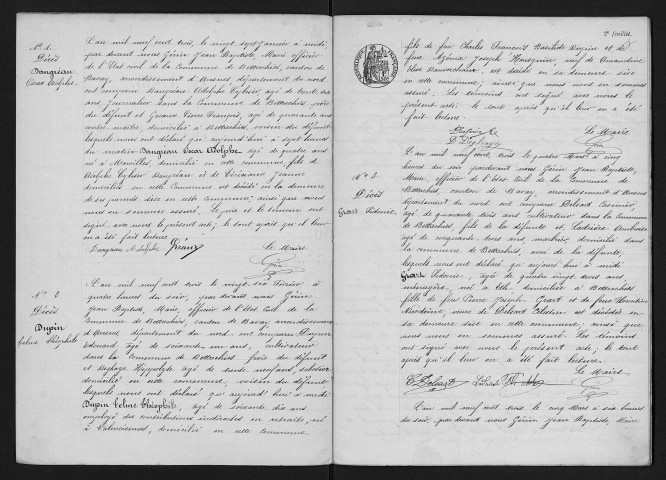 N° 1.
Décès
Dangréau
Oscar Adolphe.
L'an mil neuf cent trois, le vingt sept janvier à midi
par devant nous Gérin Jean Baptiste, Maire officier
de l'Etat civil de la Commune de Bettrechies, canton de
Bavay, arrondissement d'Avesnes, département du nord
ont comparu Dangréau Adolphe Cylvir, agé de trente six
ans, journalier dans la Commune de Bettrechies père
du défunt et Griaux Pierre François, agé de quarante ans
domicilié à Bettrechies, voisin du défunt
lesquels nous ont déclaré qu'aujourd'hui à sept heures
du matin Dangréau Oscar Adolphe agé de quatre ans
né à domicilié en cette commune, fils de
Adolphe Cylvir Dangréau et de Jeanne
domiciliés en cette Commune est décédé en la demeure
de ses parents sise en cette commune, ainsi que nous
nous en sommes assuré. Le père et le témoin ont
signé avec nous le présent acte, le tout après qu'il leur
en a été fait lecture
Dangréau Adolphe Griaux Le Maire
Gérin
N° 2
Décès
Dupin
Celine Théophile
L'an mil neuf cent trois le vingt six Février à
quatre heures du soir, par devant nous Gérin
Jean Baptiste Maire, officier de l'Etat Civil de la
Commune de Bettrechies, canton de Bavay arrondissement
d'Avesnes département du nord, ont comparu Dupin
Edouard, agé de soixante ans, cultivateur
dans la Commune de Bettrechies frère du défunt
et Deghaye Hippolyte agé de trente neuf ans,
domicilié en cette commune, voisin du défunt
lesquels nous ont déclaré qu'aujourd'hui à midi
Dupin Celine Théophile, agé de soixante dix ans
employé des contributions indirectes en retraite, né
à Valenciennes, domicilié en cette Commune
2e feuillet.
fils de feu Charles François Basilide Dupin et de
feue Azéma Joseph veuf de Amandine
Elise est décédé en sa demeure sise
en cette commune; ainsi que nous nous en sommes
assuré. Les témoins ont signé avec nous le
présent acte; le tout après qu'il leur en a été
fait lecture.
Dupin E. Le Maire
D. Deghaye Gérin
N° 3.
Décès
Grart Ludovie.
L'an mil neuf cent trois le quatre Mars à cinq
heures du soir pardevant nous Gérin Jean Baptiste,
Maire, officier de l'Etat Civil de la Commune de
Bettrechies, canton de Bavay, arrondissement d'Avesnes
département du nord ont comparu Delsart Casimir,
agé de quarante trois ans cultivateur dans la Commune
de Bettrechies, fils de la défunte et Ladrière Ambroise
agé de cinquante trois ans, marbrier, domicilié dans
la commune de Bettrechies, ami de la défunte,
lesquels nous ont déclaré qu'aujourd'hui à midi
Grart Ludovie, agée de quatre vingt trois ans,
ménagère, née à domiciliée à Bettrechies
fille de feu Pierre Joseph Grart et de feue
veuve de Delsart Célestin, est décédée en
sa demeure sise en cette commune; ainsi que
nous nous en sommes assuré. Les témoins
ont signé avec nous le présent acte; le tout
après qu'il leur en a été fait lecture.
Le Maire
C. Delsart Gérin
L'an mil neuf cent trois le cinq Mars à six heures
du soir, par devant nous Gérin Jean Baptiste, Maire